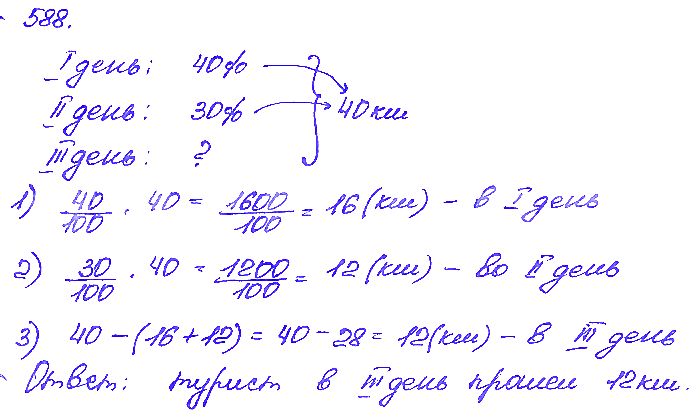 588.
I день: 40%
II день: 30% 40 км
III день: ?
1) 40/100 · 40 = 1600/100 = 16 (км) – в I день
2) 30/100 · 40 = 1200/100 = 12 (км) – во II день
3) 40 – (16 + 12) = 40 – 28 = 12 (км) – в III день
Ответ: турист в III день прошел 12 км.